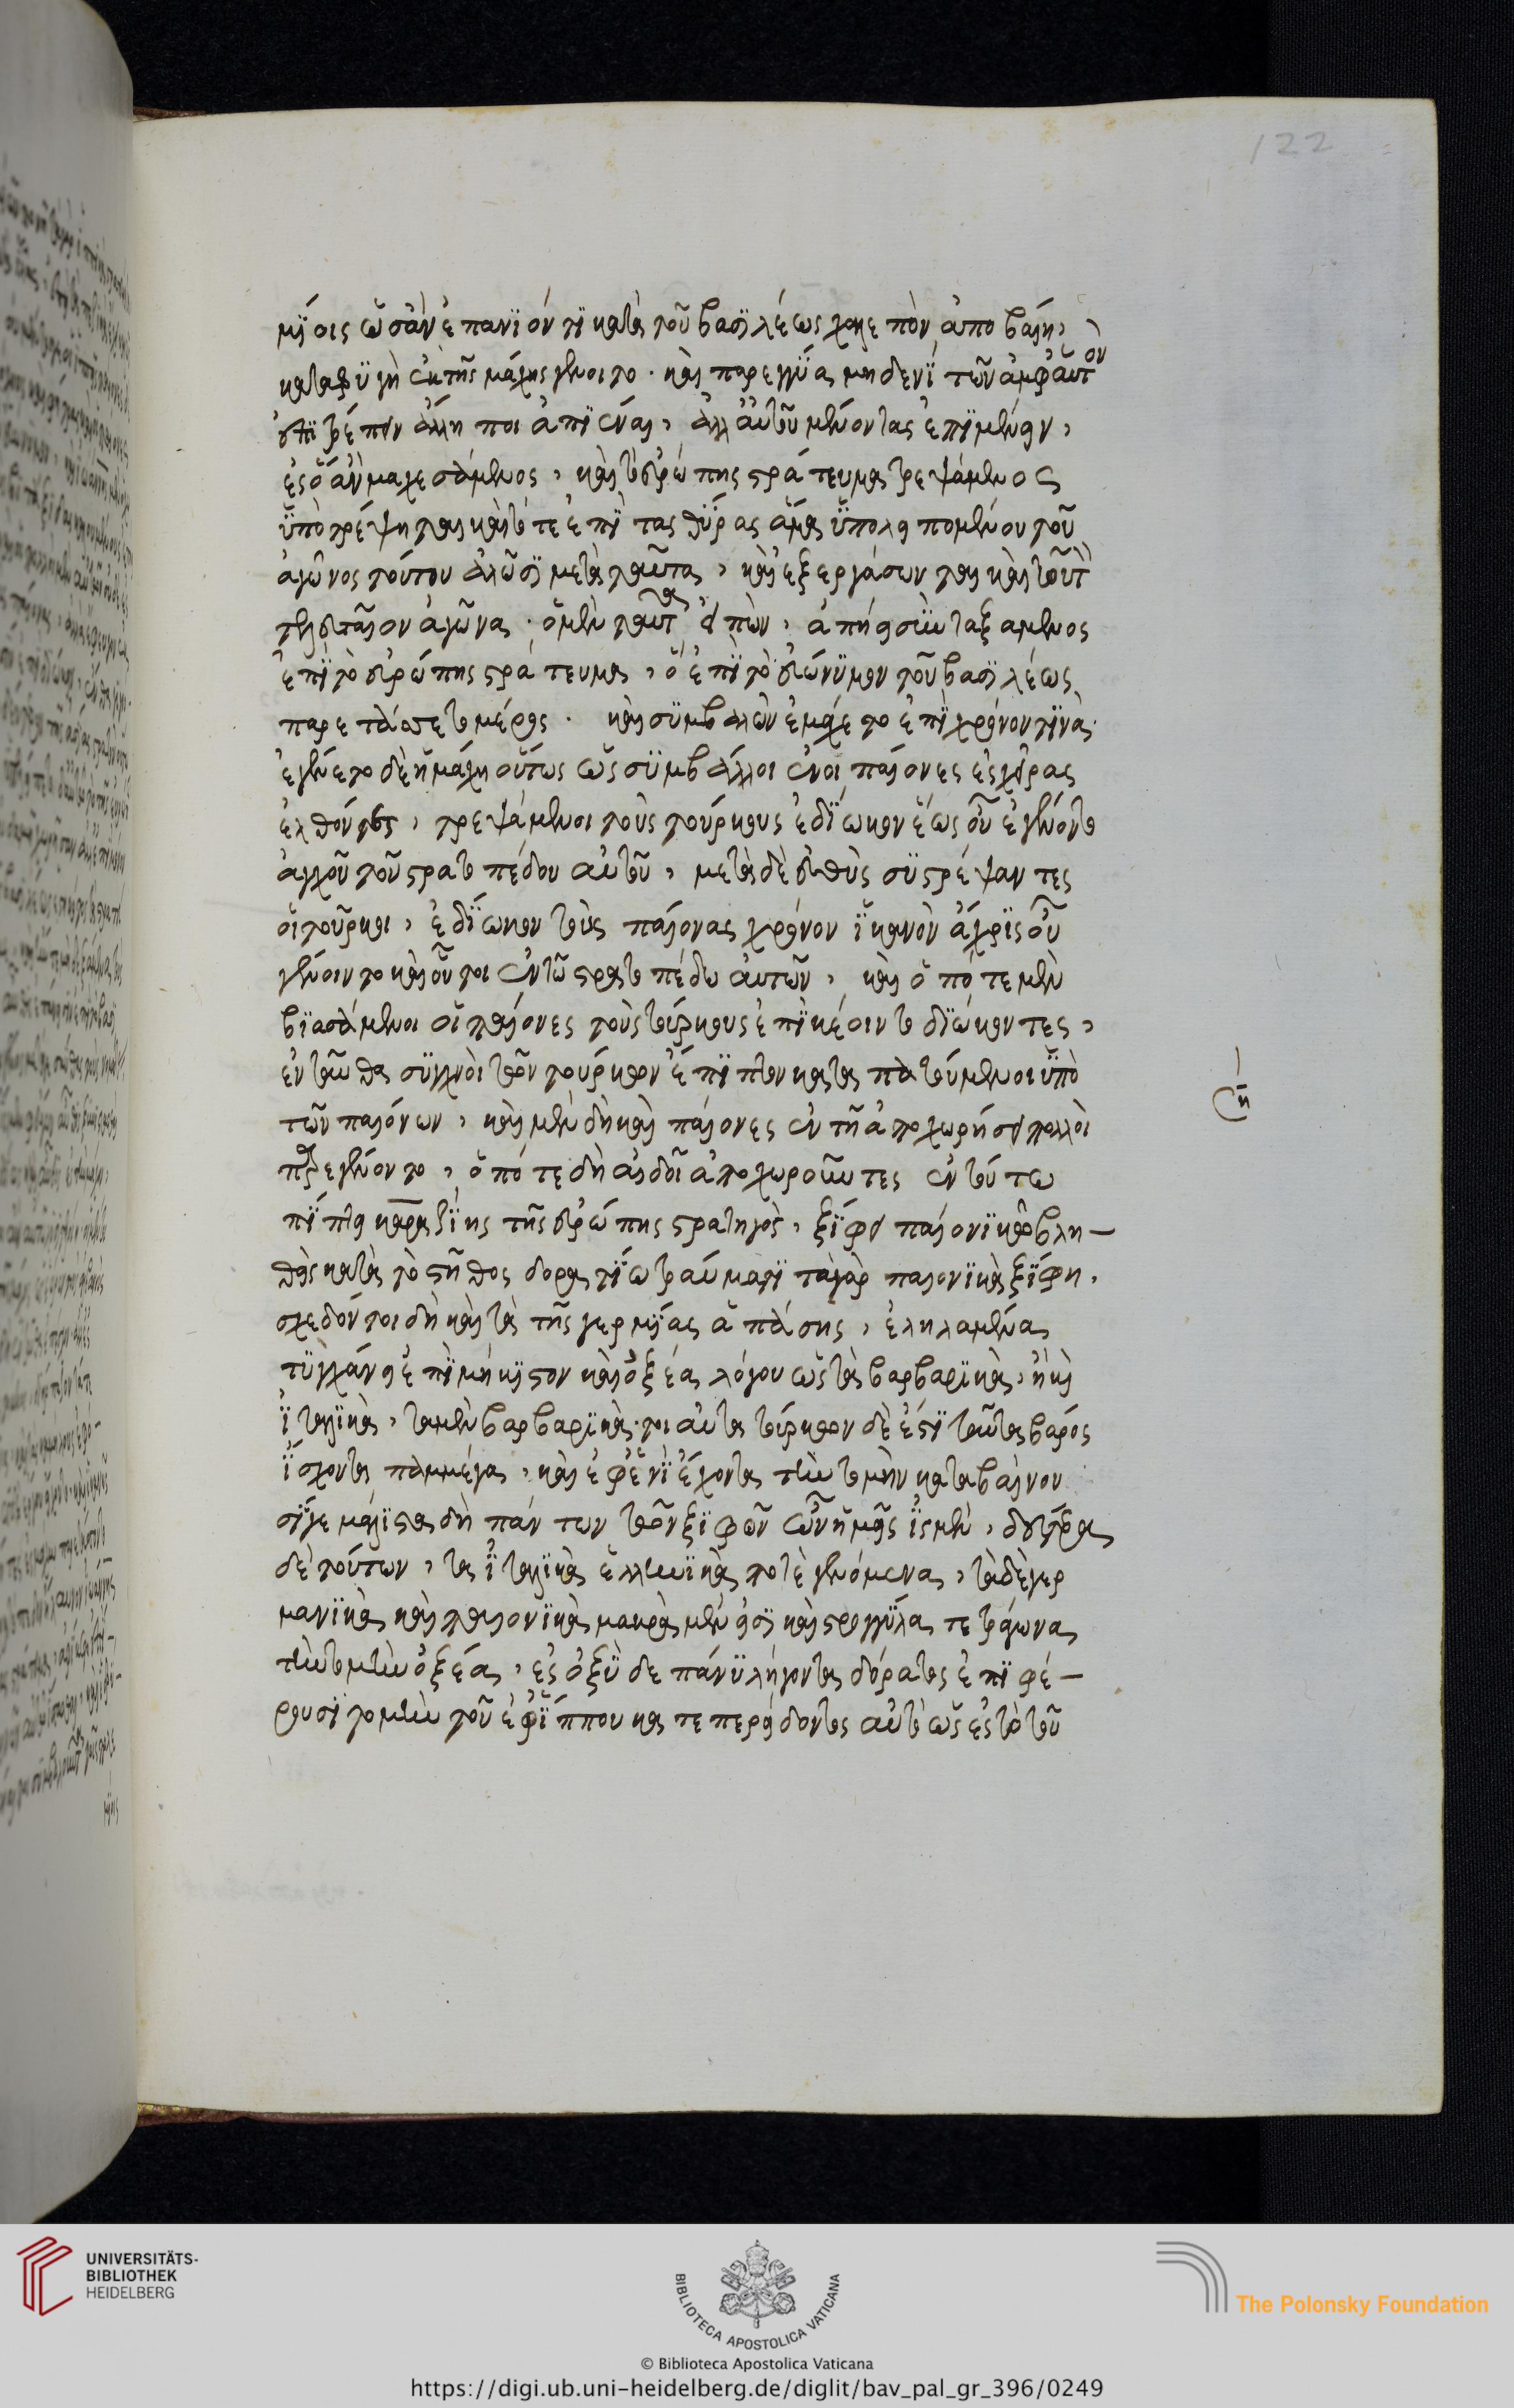 μίοις ὡς ἂν ἐπανιόντι κατὰ τοῦ βασιλέως χαλεπὸν ἀποβαίη,
καταφυγὴ ἐκ τῆς μάχης γένοιτο. καὶ παρεγγύα μηδενὶ τῶν ἀμφ' αὐτὸν
ἐπιτρέπειν ἄλλη ποι ἀπιέναι, ἀλλ' αὐτοῦ μένοντας ἐπιμένειν,
ἐς ὃ ἂν μαχεσάμενος, καὶ τὸ εὐρώπης στράτευμα τρεψάμενος
ὑποτρέψηται καὶ τότε ἐπὶ τὰς θύρας ἅμα ὑπολειπομένου τοῦ
ἀγῶνος τούτου ἁλῶσι μετὰ ταῦτα, καὶ ἐξεργάσωνται καὶ τοῦτον
τελευταῖον ἀγῶνα. ὁ μὲν ταῦτα εἰπὼν, ἀπήει συνταξάμενος
ἐπὶ τὸ εὐρώπης στράτευμα, ὃ ἐπὶ τὸ εὐώνυμον τοῦ βασιλέως
παρετάσσετο μέρος. καὶ συμβαλὼν ἐμάχετο ἐπὶ χρόνον τινὰ.
ἐγένετο δὲ ἡ μάχη οὕτως ὡς συμβάλλοιεν οἱ παίονες ἐς χεῖρας
ἐλθόντες, τρεψάμενοι τοὺς τούρκους ἐδίωκον ἕως οὗ ἐγένοντο
ἀγχοῦ τοῦ στρατοπέδου αὐτοῦ, μετὰ δὲ εὐθὺς συστρέψαντες
οἱ τοῦρκοι, ἐδίωκον τοὺς παίονας χρόνον ἱκανὸν ἄχρις οὗ
γένοιντο καὶ οὗτοι ἐν τῶ στρατοπέδω αὐτῶν, καὶ ὁπότε μὲν
βιασάμενοι οἱ παίονες τοὺς τούρκους ἐπικέοιντο διώκοντες,
ἐνταῦθα συχνοὶ τῶν τούρκων ἔπιπτον καταπατούμενοι ὑπὸ
τῶν παιόνων, καὶ μὲν δὴ καὶ παίονες ἐν τῆ ἀποχωρήσει πολλοὶ
ἐγένοντο, ὁπότε δὴ ἀποχωροῦντες ἐν τούτω
πίπτει καρατζίης τῆς εὐρώπης στρατηγὸς, ξίφει παιονικῶ βλη-
θεὶς κατὰ τὸ στῆθος δορατίω τραύματι τὰ γὰρ παιονικὰ ξίφη.
σχεδόν τοι δὴ καὶ τὰ τῆς γερμίας ἁπάσης, ἐληλαμένα
τυγχάνει ἐπὶ μήκιστον καὶ ὀξέα λόγου ὡς τὰ βαρβαρικὰ, ἢ καὶ
ἰταλικὰ, τὰ μὲν βαρβαρικὰ τοιαῦτα τούρκων δέ ἐστι ταῦτα βάρος
ἴσχοντα πάμμεγα, καὶ ἐφ' ἑνὶ ἔχοντα τὴν τομὴν καταβαίνου
σί γε μάλιστα δὴ πάντων τῶν ξιφῶν ὧν ἡμεῖς ἴσμεν, δεύτερα
δὲ τούτων, τὰ ἰταλικὰ ἑλληνικὰ ποτὲ γενόμενα, τὰ δὲ γερ
μανικὰ καὶ παιονικὰ μακρὰ μέν εἰσι καὶ στρογγύλα τετράγωνα
τὴν τομὴν ὀξέα, ἐς ὀξὺ δὲ πάνυ λήγοντα δόρατος ἐπιφέ-
ρουσι τομὴν τοῦ ἐφίππου κατεπερείδοντος αὐτὸ ὡς ἐς τὸ τοῦ
122
UNIVERSITÄTS-
BIBLIOTHEK
HEIDELBERG
BIBLIOTECA APOSTOLICA VATICANA
The Polonsky Foundation
© Biblioteca Apostolica Vaticana
https://digi.ub.uni-heidelberg.de/diglit/bav_pal_gr_396/0249